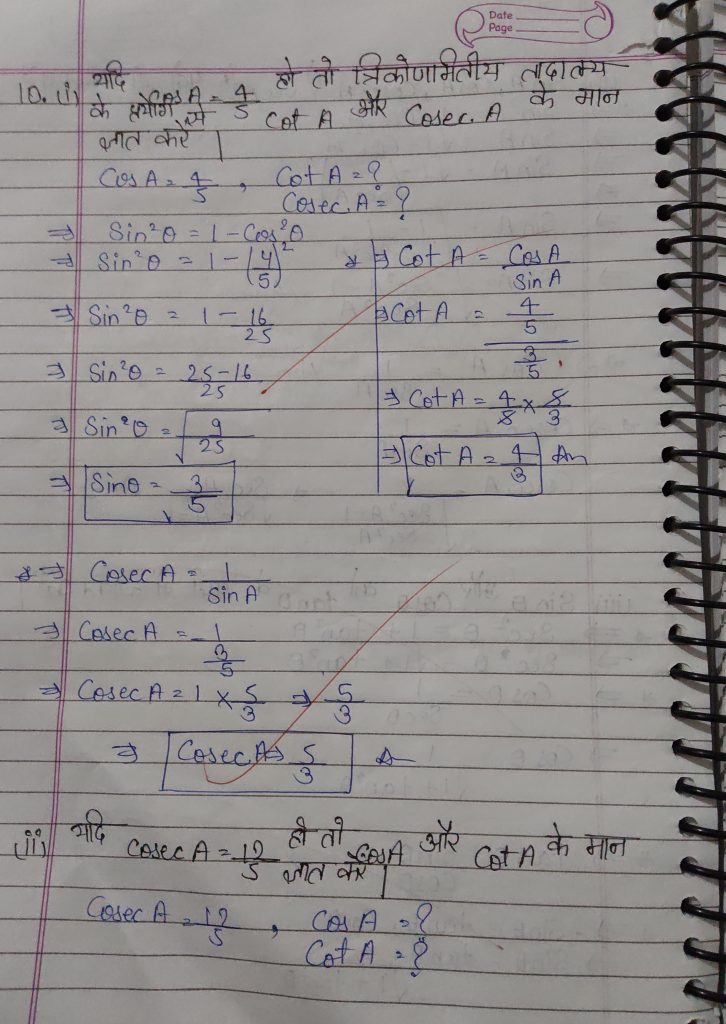 Date
Page
10. (i) यदि Cos A = 4/5 हो तो त्रिकोणमितीय तादात्म्य
के प्रयोग से Cot A और Cosec. A के मान
ज्ञात करें |
Cos A = 4/5 , Cot A = ?
Cosec. A = ?
⇒ Sin²θ = 1 - Cos²θ
⇒ Sin²θ = 1 - (4/5)²
⇒ Sin²θ = 1 - 16/25
⇒ Sin²θ = 25-16/25
⇒ Sin²θ = √9/25
⇒ Sinθ = 3/5
* ⇒ Cot A = Cos A/Sin A
⇒ Cot A = 4/5 / 3/5
⇒ Cot A = 4/5 × 5/3
⇒ Cot A = 4/3 An
* ⇒ Cosec A = 1/Sin A
⇒ Cosec A = 1/3/5
⇒ Cosec A = 1 × 5/3 ⇒ 5/3
⇒ Cosec A ⇒ 5/3 A
(ii) यदि Cosec A = 12/5 हो तो Cos A और Cot A के मान
ज्ञात करें |
Cosec A = 12/5 , Cos A = ?
Cot A = ?